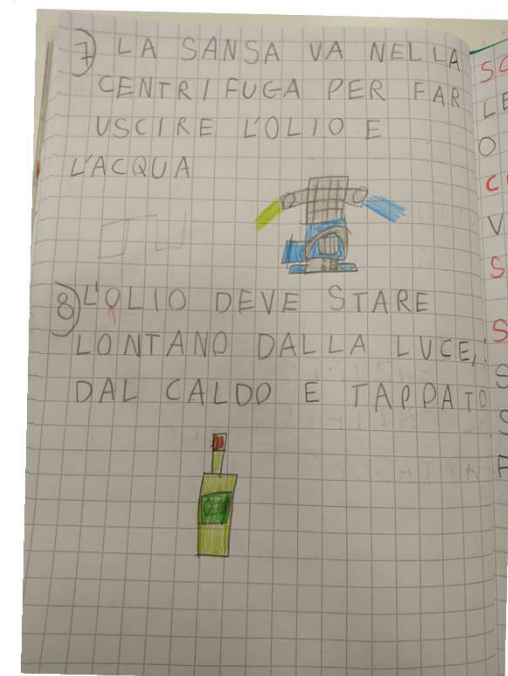 7) LA SANSA VA NELLA
CENTRIFUGA PER FAR
USCIRE L'OLIO E
L'ACQUA
8) L'OLIO DEVE STARE
LONTANO DALLA LUCE,
DAL CALDO E TAPPATO
SC
LE
O
C
V
S
S
S
S